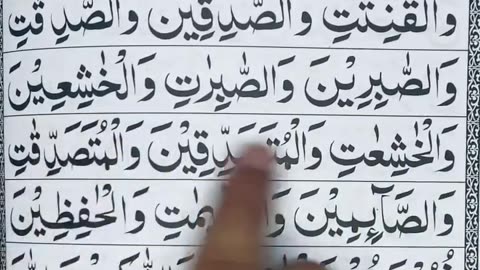 وَالْقٰنِتٰتِ وَالصّٰدِقِيْنَ وَالصّٰدِقٰتِ
وَالصّٰبِرِيْنَ وَالصّٰبِرٰتِ وَالْخٰشِعِيْنَ
وَالْخٰشِعٰتِ وَالْمُتَصَدِّقِيْنَ وَالْمُتَصَدِّقٰتِ
وَالصَّآئِمِيْنَ وَالصّٰٓئِمٰتِ وَالْحٰفِظِيْنَ